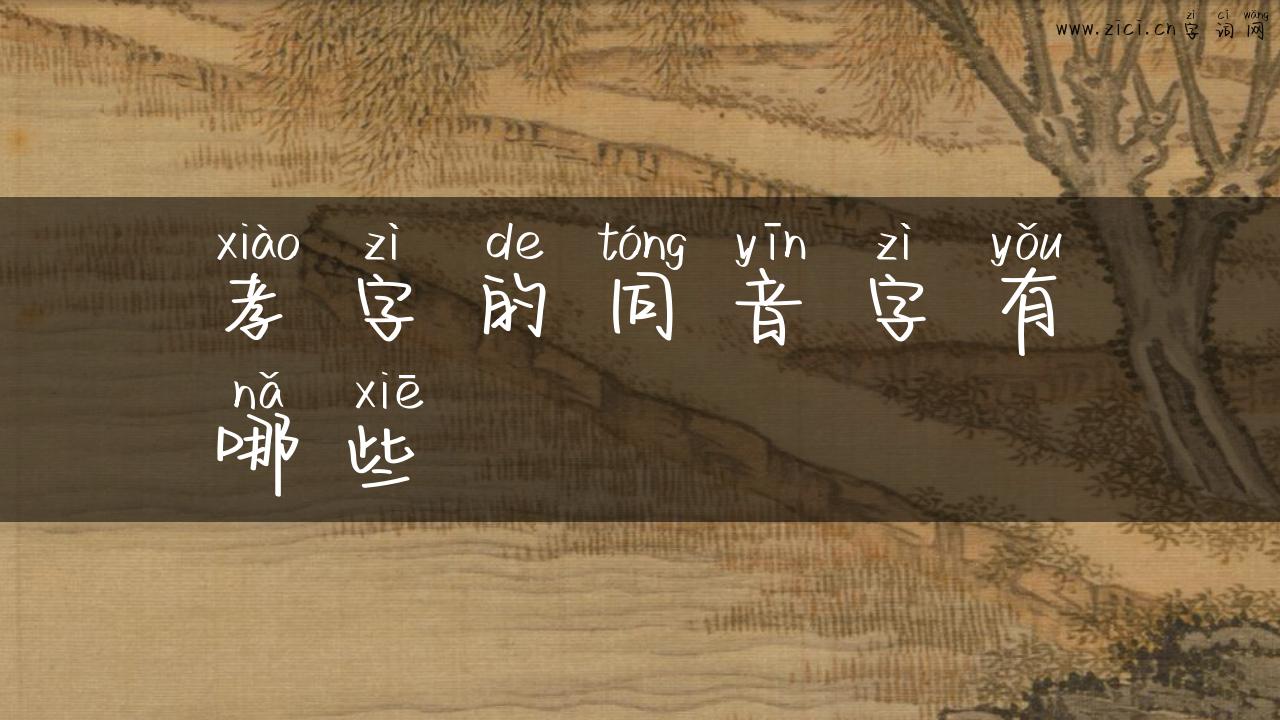 zì cí wǎng
www.zici.cn字词网
xiào zì de tóng yīn zì yǒu
孝字的同音字有
nǎ xiē
哪些